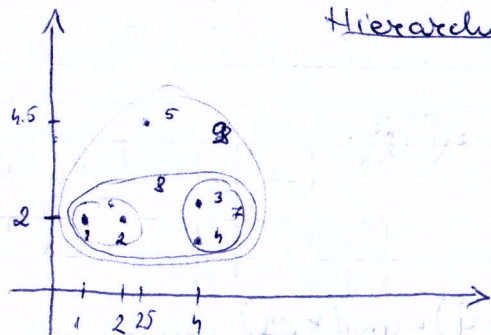 Hierarch
4.5
5
8
3
6
7
2
1
2
4
1
2
2.5
4